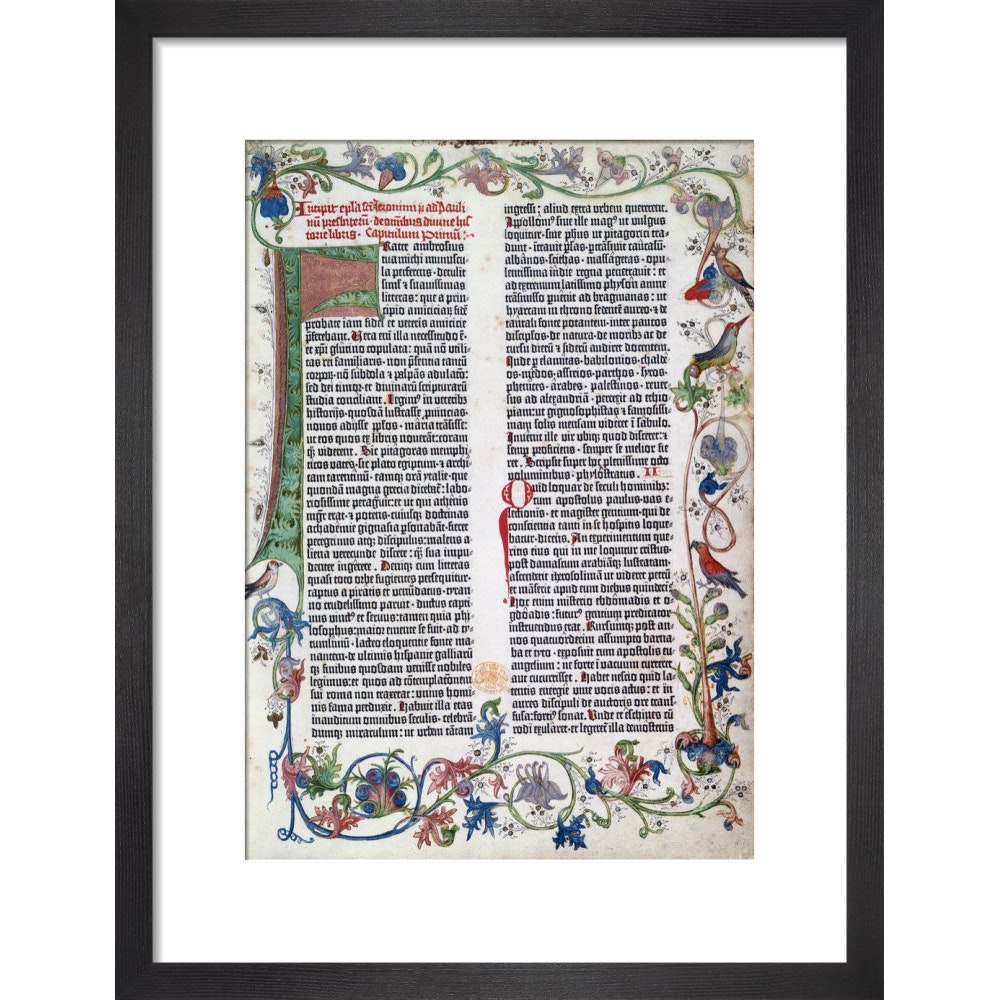 Incipit epl̃a scĩ Jeronimi p̃ ad Pauli
nũ presbiterũ · de omnibus diuine his
torie libris · Capitulum Primũ :·
Frater ambrosius
tua michi munuscu
la perferens · detulit
simul et suauissimas
litteras : que a prin
cipio amiciciar̃ · fidẽ
probate iam fidei et veteris amicicie
p̃ferebant. Vera enĩ illa necessitudo ẽ ·
et xp̃i glutino copulata : quã nõ utili
tas rei familiaris · nõ presẽtia tantũ
corpoꝝ · nõ subdola et palpãs adulacõ :
sed dei timor · et diuinarũ scripturarũ
studia conciliant. Legimꝰ in veteribꝰ
historijs · quosdã lustrasse ꝓuincias ·
nouos adijsse ppl̃os · maria trãsisse :
ut eos quos ex libris nouerãt : coram
qꝫ viderent. Sic pitagoras memphi
ticos vates · sic plato egiptum · et archi
tam tarentinũ · eamqꝫ orã ytalie · que
quondã magna grecia dicebat̃ : labo
riosissime peragrauit : et ut qui athenis
mgr̃ erat · et potens · cuiusqꝫ doctrinas
achademie gignasia ꝑsonabãt · fieret
peregrinus atqꝫ discipulus : malens a
liena verecunde discere : qͫ sua impu
denter ingerere. Denicqꝫ cum litteras
quasi toto orbe fugientes persequit̃ ·
captus a piratis et venũdatus · tyrã
no crudelissimo paruit · ductus capti
uus vinctꝰ et seruus : tamen quia phi
losophus : maior emente se fuit · ad ty
tumliuiũ · lacteo eloquentie fonte ma
nantem · de ultimis hispanie galliarũ
qꝫ finibus quosdam venisse nobiles
legimus : et quos ad cõtemplacõnem
sui roma non traxerat : unius homi
nis fama perduxit. Habuit illa etas
inauditum omnibus seculis · celebrã
dumqꝫ miraculum : ut urbem tãtam
ingressi : aliud extra urbem quererent.
Apollonĩꝰ siue ille magꝰ ut vulgus
loquitur · siue ph̃us ut pitagorici tra
dunt · ĩtrauit ꝑsas · ꝑtrãsiuit caucasũ
albanos · scithas · massagetas · opu
lentissima indie regna penetrauit : et
ad extremum latissimo physon amne
trãsmisso ꝑuẽit ad bragmanas : ut
hyarcam in throno sedentẽ aureo · et de
tantali fonte potantem · inter paucos
discipl̃os · de natura · de moribꝫ ac de
cursu dierũ et siderũ audiret docentem.
Inde ꝑ elamitas · babilonios · chalde
os · medos · assirios · parthos · syros
phenices · arabes · palestinos · reuer
sus ad alexandriã · perrexit ad ethio
piam : ut gignosophistas et famosissi
mam solis mensam videret ĩ sabulo.
Inuẽit ille vir ubiqꝫ quod disceret : et
semꝑ proficiens · semper se melior fie
ret. Scripsit super hoc plenissime octo
voluminibus · phylostratus. II
Quid loquar de seculi hominibꝫ :
cum apostolus paulus · vas e
lectionis · et magister gentium · qui de
consciencia tanti in se hospitis loque
batur · dicens. An experimentum que
ritis eius qui in me loquitur cristus.
post damascum arabiãqꝫ lustratam :
ascenderit iherosolimã ut videret petrũ
et mãserit apud eum diebus quindeci.
Hoc enim misterio ebdomadis et o
gdoadis : futurꝰ gentium predicator
instruendus erat. Rursumqꝫ post an
nos quatuordecim assumpto barna
ba et tyto · exposuit cum apostolis eu
angelium : ne forte ĩ vacuum curreret
aut cucurrisset. Habet nescio quid la
tentis energie viue vocis actus : et in
aures discipuli de auctoris ore trans
fusa : fortiꝰ sonat. Unde et eschines cũ
rodi exularet · et legeret̃ illa demostenis